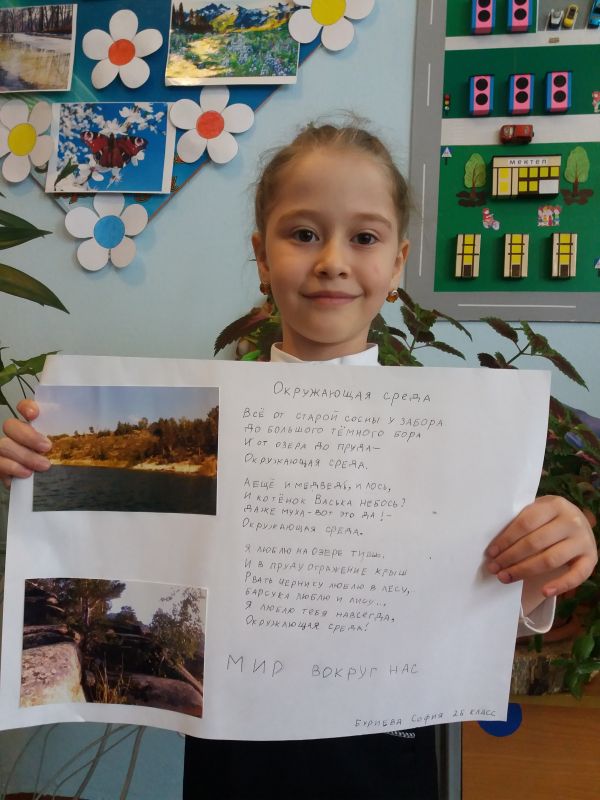 МЕКТЕП
ОКРУЖАЮЩАЯ СРЕДА
ВСЁ ОТ СТАРОЙ СОСНЫ У ЗАБОРА
ДО БОЛЬШОГО ТЁМНОГО БОРА
И ОТ ОЗЕРА ДО ПРУДА—
ОКРУЖАЮЩАЯ СРЕДА.
А ЕЩЁ И МЕДВЕДЬ, И ЛОСЬ,
И КОТЁНОК ВАСЬКА НЕБОСЬ?
ДАЖЕ МУХА-ВОТ ЭТО ДА!—
ОКРУЖАЮЩАЯ СРЕДА.
Я ЛЮБЛЮ НА ОЗЕРЕ ТИШЬ,
И В ПРУДУ ОТРАЖЕНИЕ КРЫШ
РВАТЬ ЧЕРНИКУ ЛЮБЛЮ В ЛЕСУ,
БАРСУКА ЛЮБЛЮ И ЛИСУ...,
Я ЛЮБЛЮ ТЕБЯ НАВСЕГДА,
ОКРУЖАЮЩАЯ СРЕДА!
МИР ВОКРУГ НАС
СОФИЯ 2Б КЛАСС